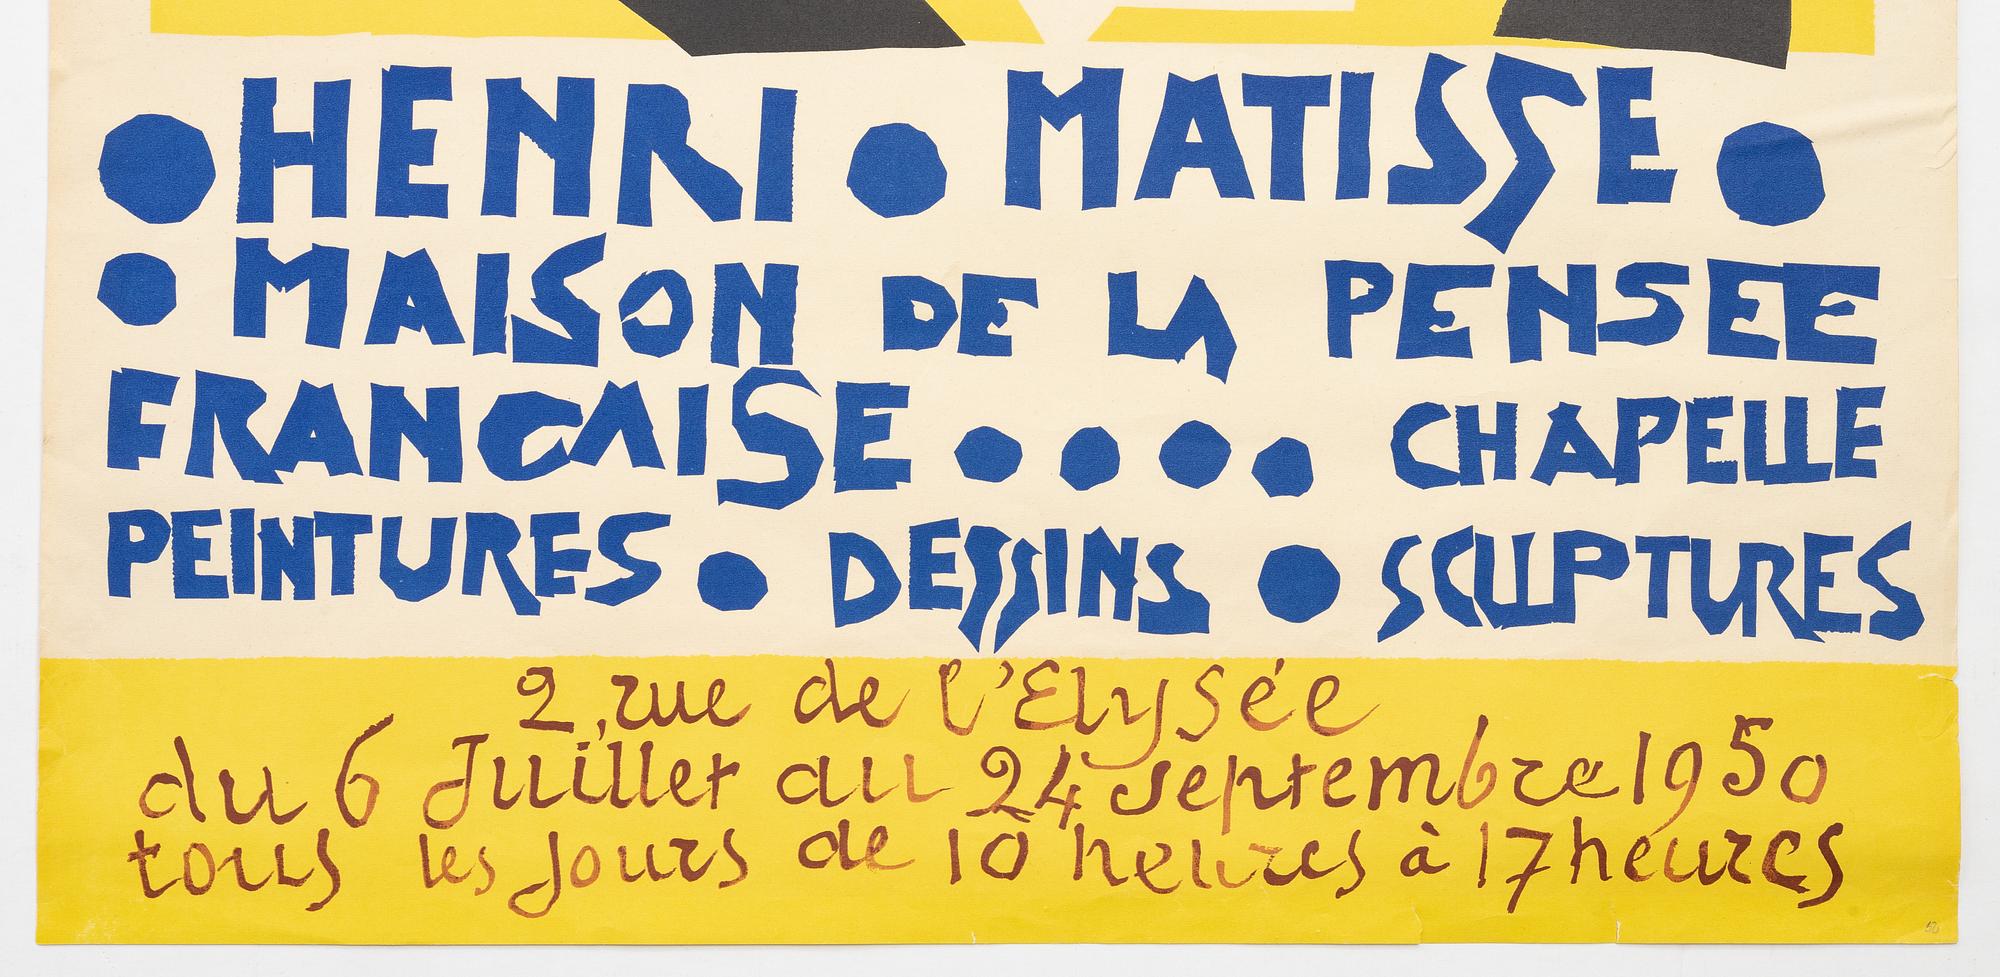 HENRI • MATISSE
MAISON DE LA PENSEE
FRANCAISE • • • • CHAPELLE
PEINTURES • DESSINS • SCULPTURES
2, rue de l'Elysée
du 6 Juillet au 24 septembre 1950
tous les jours de 10 heures à 17 heures